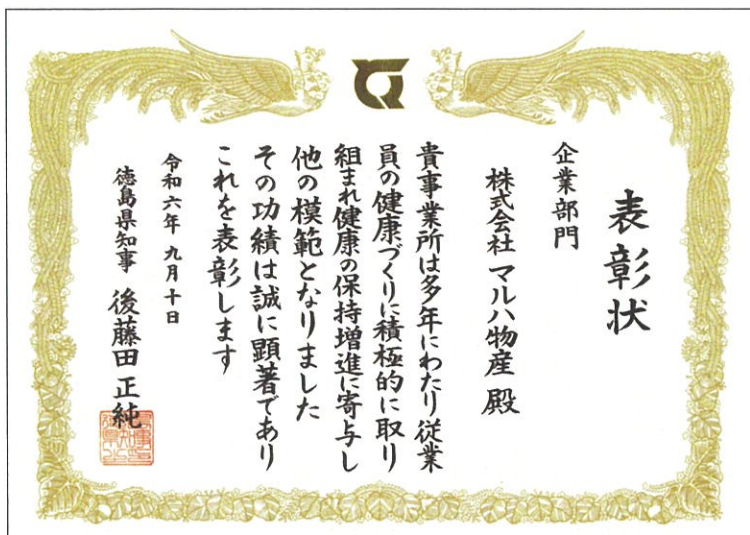 表彰状
企業部門
株式会社 マルハ物産 殿
貴事業所は多年にわたり従業
員の健康づくりに積極的に取り
組まれ健康の保持増進に寄与し
他の模範となりました
その功績は誠に顕著であり
これを表彰します
令和六年 九月十日
徳島県知事 後藤田 正純